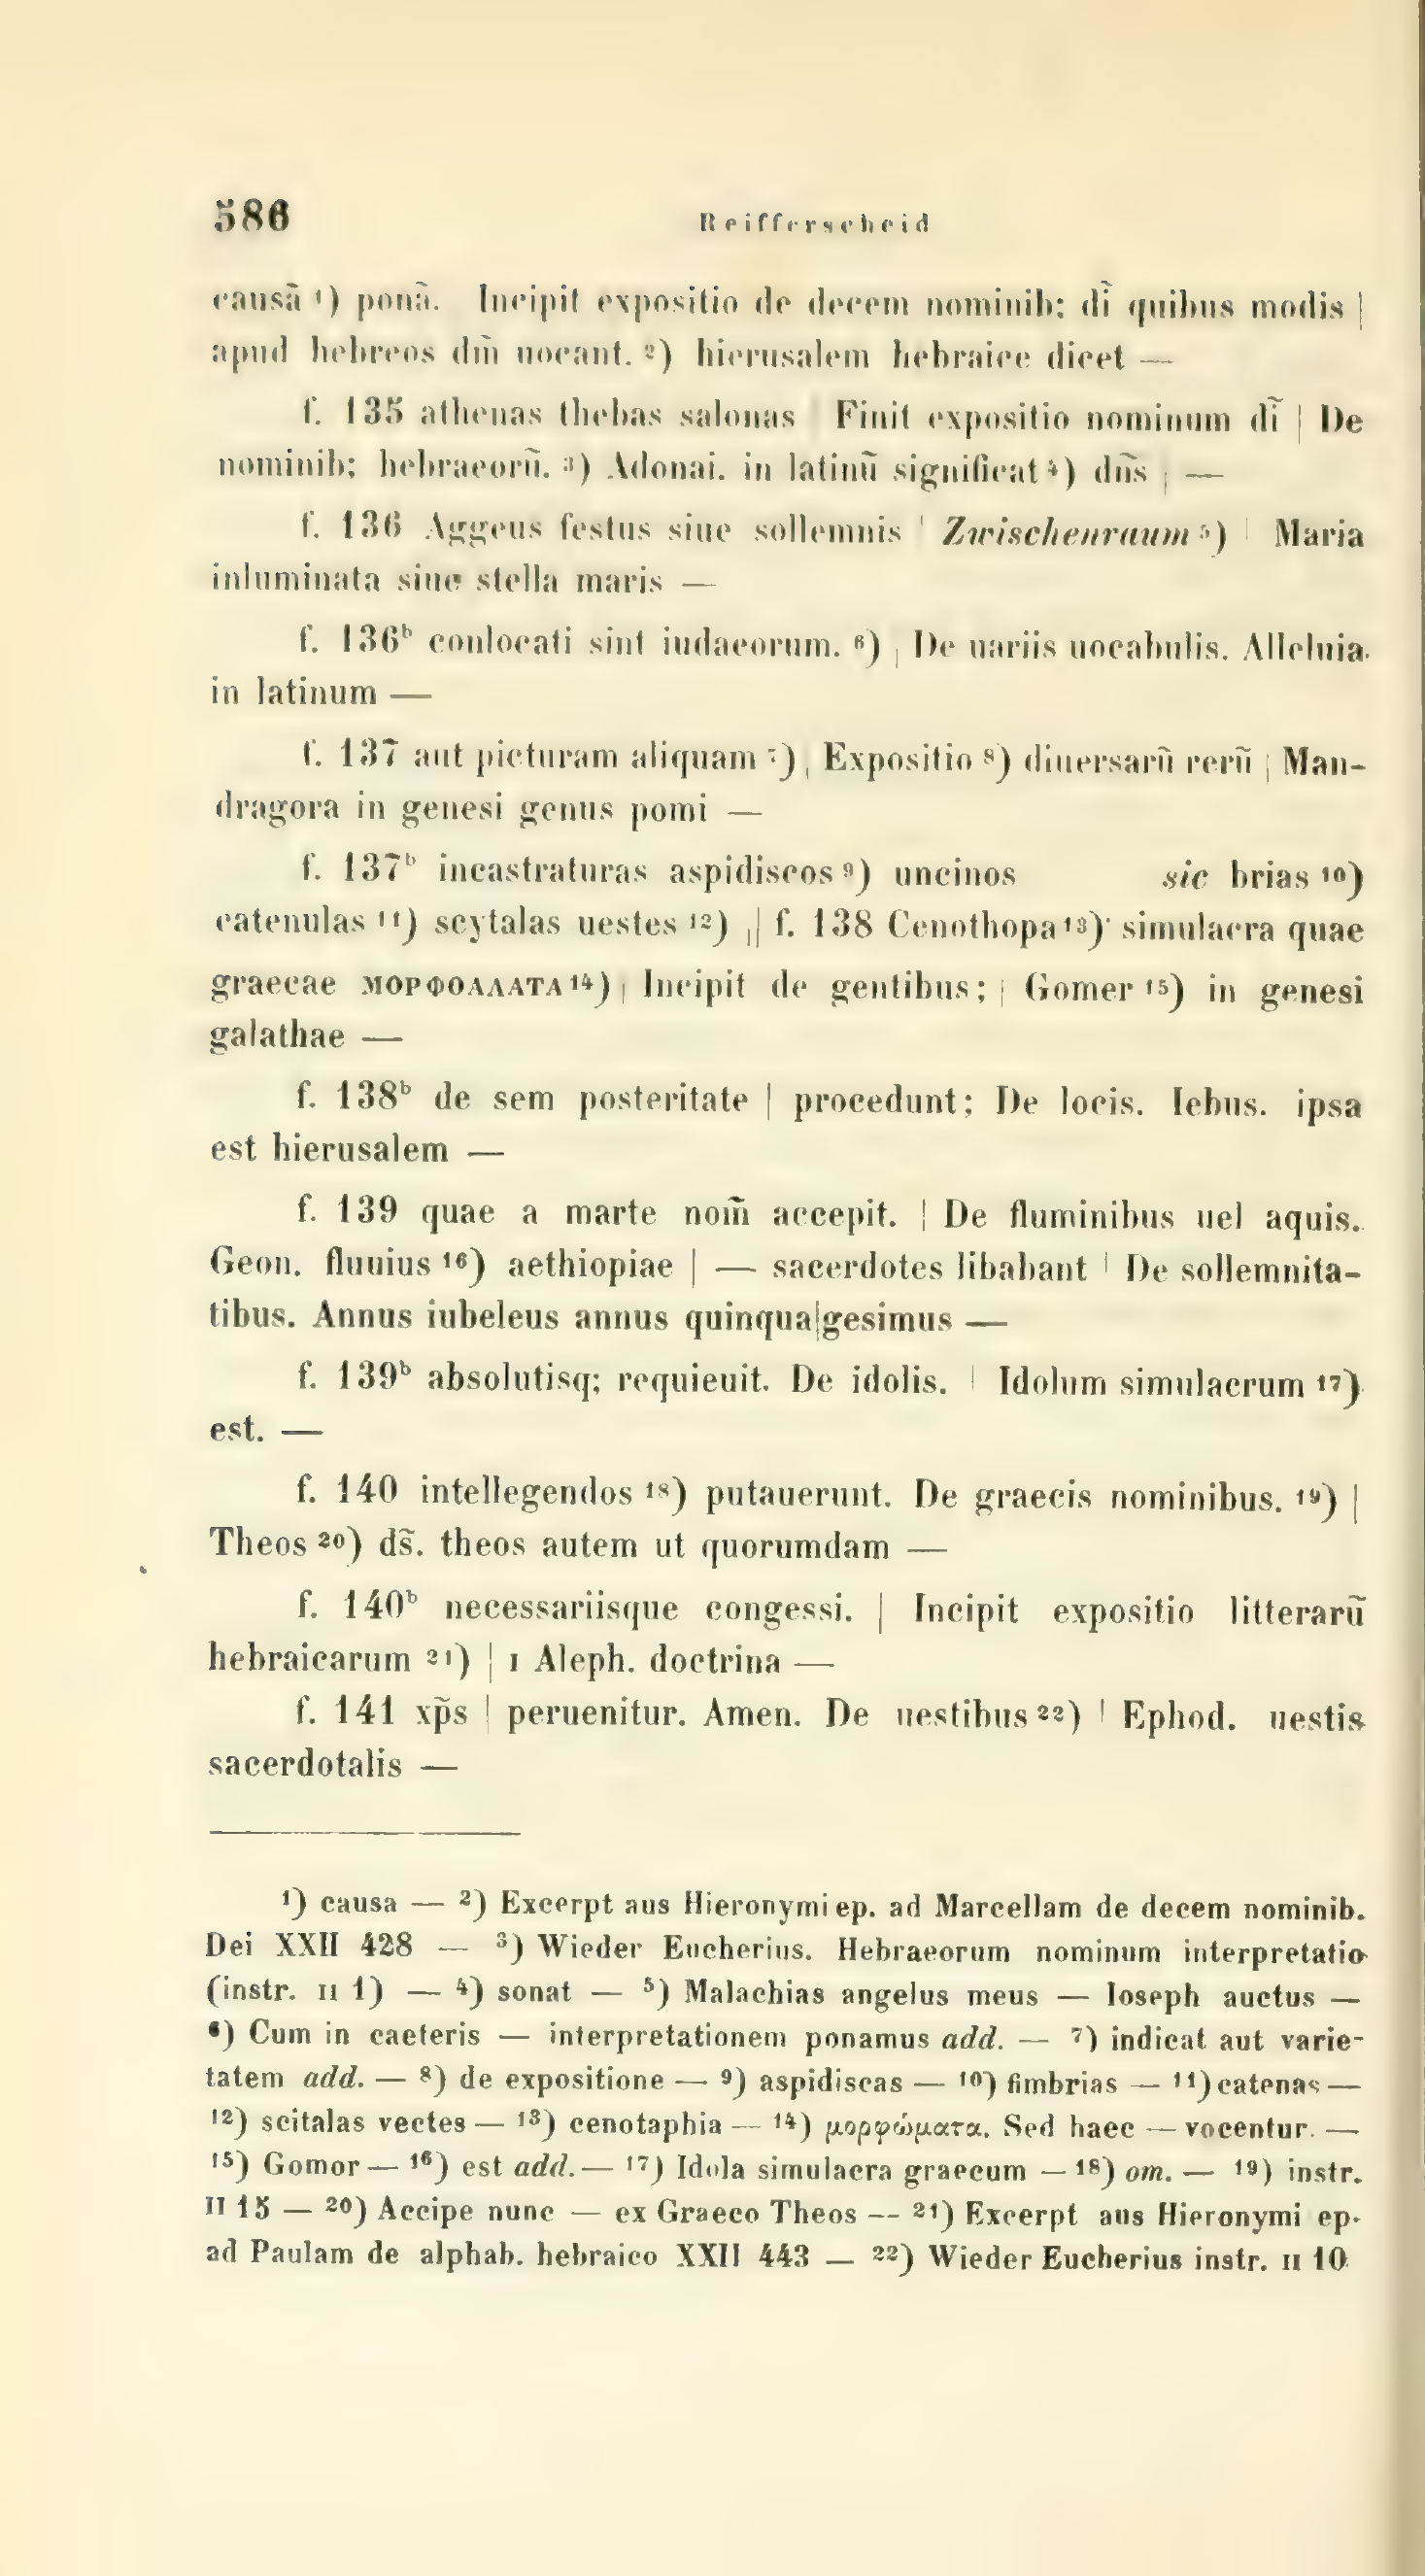 586
Reifferscheid
causā ¹) ponā. Incipit expositio de decem nominib; dı̄ quibus modis |
apud hebreos dm̄ uocant. ²) hierusalem hebraice dicet —
f. 135 athenas thebas salonas | Finit expositio nominum dı̄ | De
nominib; hebraeorū. ³) Adonai. in latinū significat ⁴) dn̄s | —
f. 136 Aggeus festus siue sollemnis | Zwischenraum ⁵) | Maria
inluminata siue stella maris —
f. 136ᵇ conlocati sint iudaeorum. ⁶) | De uariis uocabulis. Alleluia.
in latinum —
f. 137 aut picturam aliquam ⁷) | Expositio ⁸) diuersarū rerū | Man-
dragora in genesi genus pomi —
f. 137ᵇ incastraturas aspidiscos ⁹) uncinos sic brias ¹⁰)
catenulas ¹¹) scytalas uestes ¹²) || f. 138 Cenothopa ¹³) simulacra quae
graecae ΜΟΡΦΟΛΛΑΤΑ ¹⁴) | Incipit de gentibus; | Gomer ¹⁵) in genesi
galathae —
f. 138ᵇ de sem posteritate | procedunt; De locis. Iebus. ipsa
est hierusalem —
f. 139 quae a marte nom̄ accepit. | De fluminibus uel aquis.
Geon. fluuius ¹⁶) aethiopiae | — sacerdotes libabant | De sollemnita-
tibus. Annus iubeleus annus quinqua|gesimus —
f. 139ᵇ absolutisq; requieuit. De idolis. | Idolum simulacrum ¹⁷)
est. —
f. 140 intellegendos ¹⁸) putauerunt. De graecis nominibus. ¹⁹) |
Theos ²⁰) ds̄. theos autem ut quorumdam —
f. 140ᵇ necessariisque congessi. | Incipit expositio litterarū
hebraicarum ²¹) | ɪ Aleph. doctrina —
f. 141 xp̄s | peruenitur. Amen. De uestibus ²²) | Ephod. uestis
sacerdotalis —
¹) causa — ²) Excerpt aus Hieronymi ep. ad Marcellam de decem nominib.
Dei XXII 428 — ³) Wieder Eucherius. Hebraeorum nominum interpretatio
(instr. ɪɪ 1) — ⁴) sonat — ⁵) Malachias angelus meus — Ioseph auctus —
⁶) Cum in caeteris — interpretationem ponamus add. — ⁷) indicat aut varie-
tatem add. — ⁸) de expositione — ⁹) aspidiscas — ¹⁰) fimbrias — ¹¹) catenas —
¹²) scitalas vectes — ¹³) cenotaphia — ¹⁴) μορφώματα. Sed haec — vocentur. —
¹⁵) Gomor — ¹⁶) est add. — ¹⁷) Idola simulacra graecum — ¹⁸) om. — ¹⁹) instr.
II 15 — ²⁰) Accipe nunc — ex Graeco Theos — ²¹) Excerpt aus Hieronymi ep.
ad Paulam de alphab. hebraico XXII 443 — ²²) Wieder Eucherius instr. ɪɪ 10